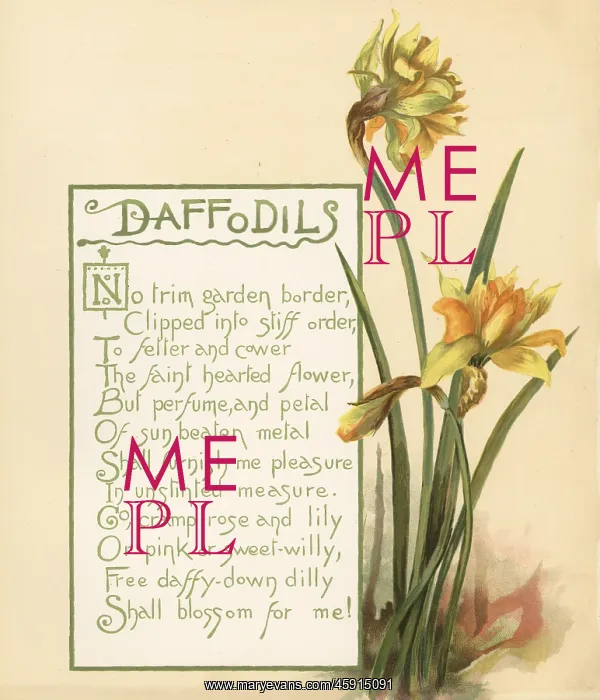 DAFFODILS
No trim garden border,
Clipped into stiff order,
To fetter and cower
The faint hearted flower,
But perfume, and petal
Of sun beaten metal
Shall furnish me pleasure
In unstinted measure.
Go, cramp rose and lily
Or pink or sweet-willy,
Free daffy-down dilly
Shall blossom for me!
ME
PL
ME
PL
www.maryevans.com/45915091